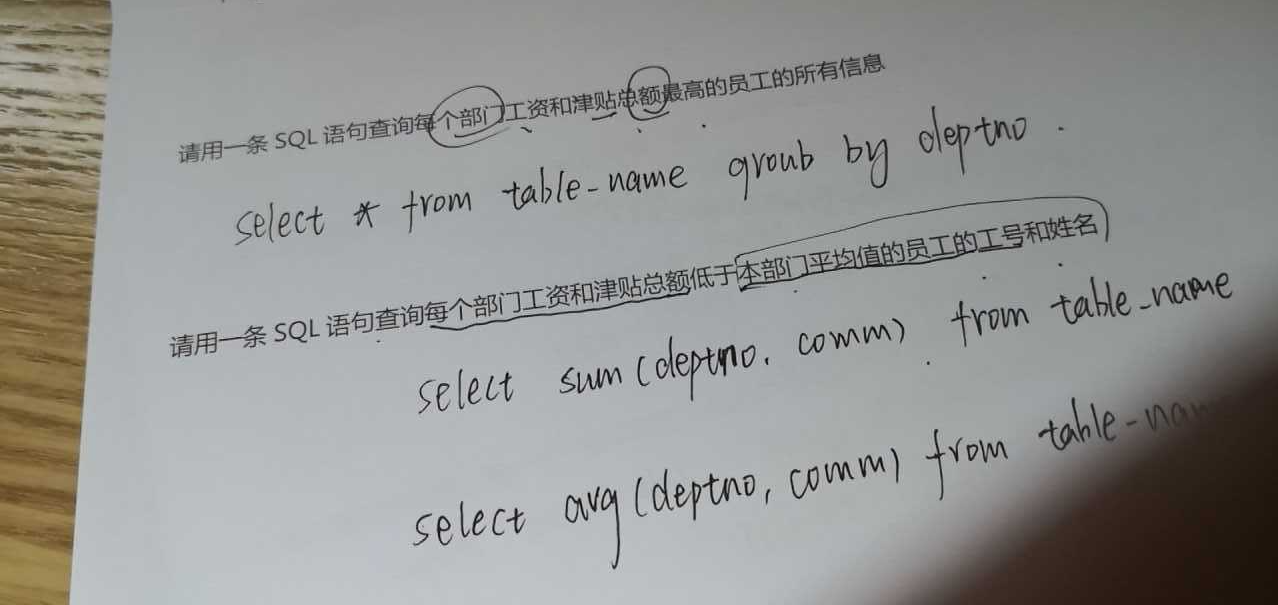 请用一条 SQL 语句查询每个部门工资和津贴总额最高的员工的所有信息
select * from table-name groub by deptno .
请用一条 SQL 语句查询每个部门工资和津贴总额低于本部门平均值的员工的工号和姓名
select sum (deptno, comm) from table_name
select avg (deptno, comm) from table-nam